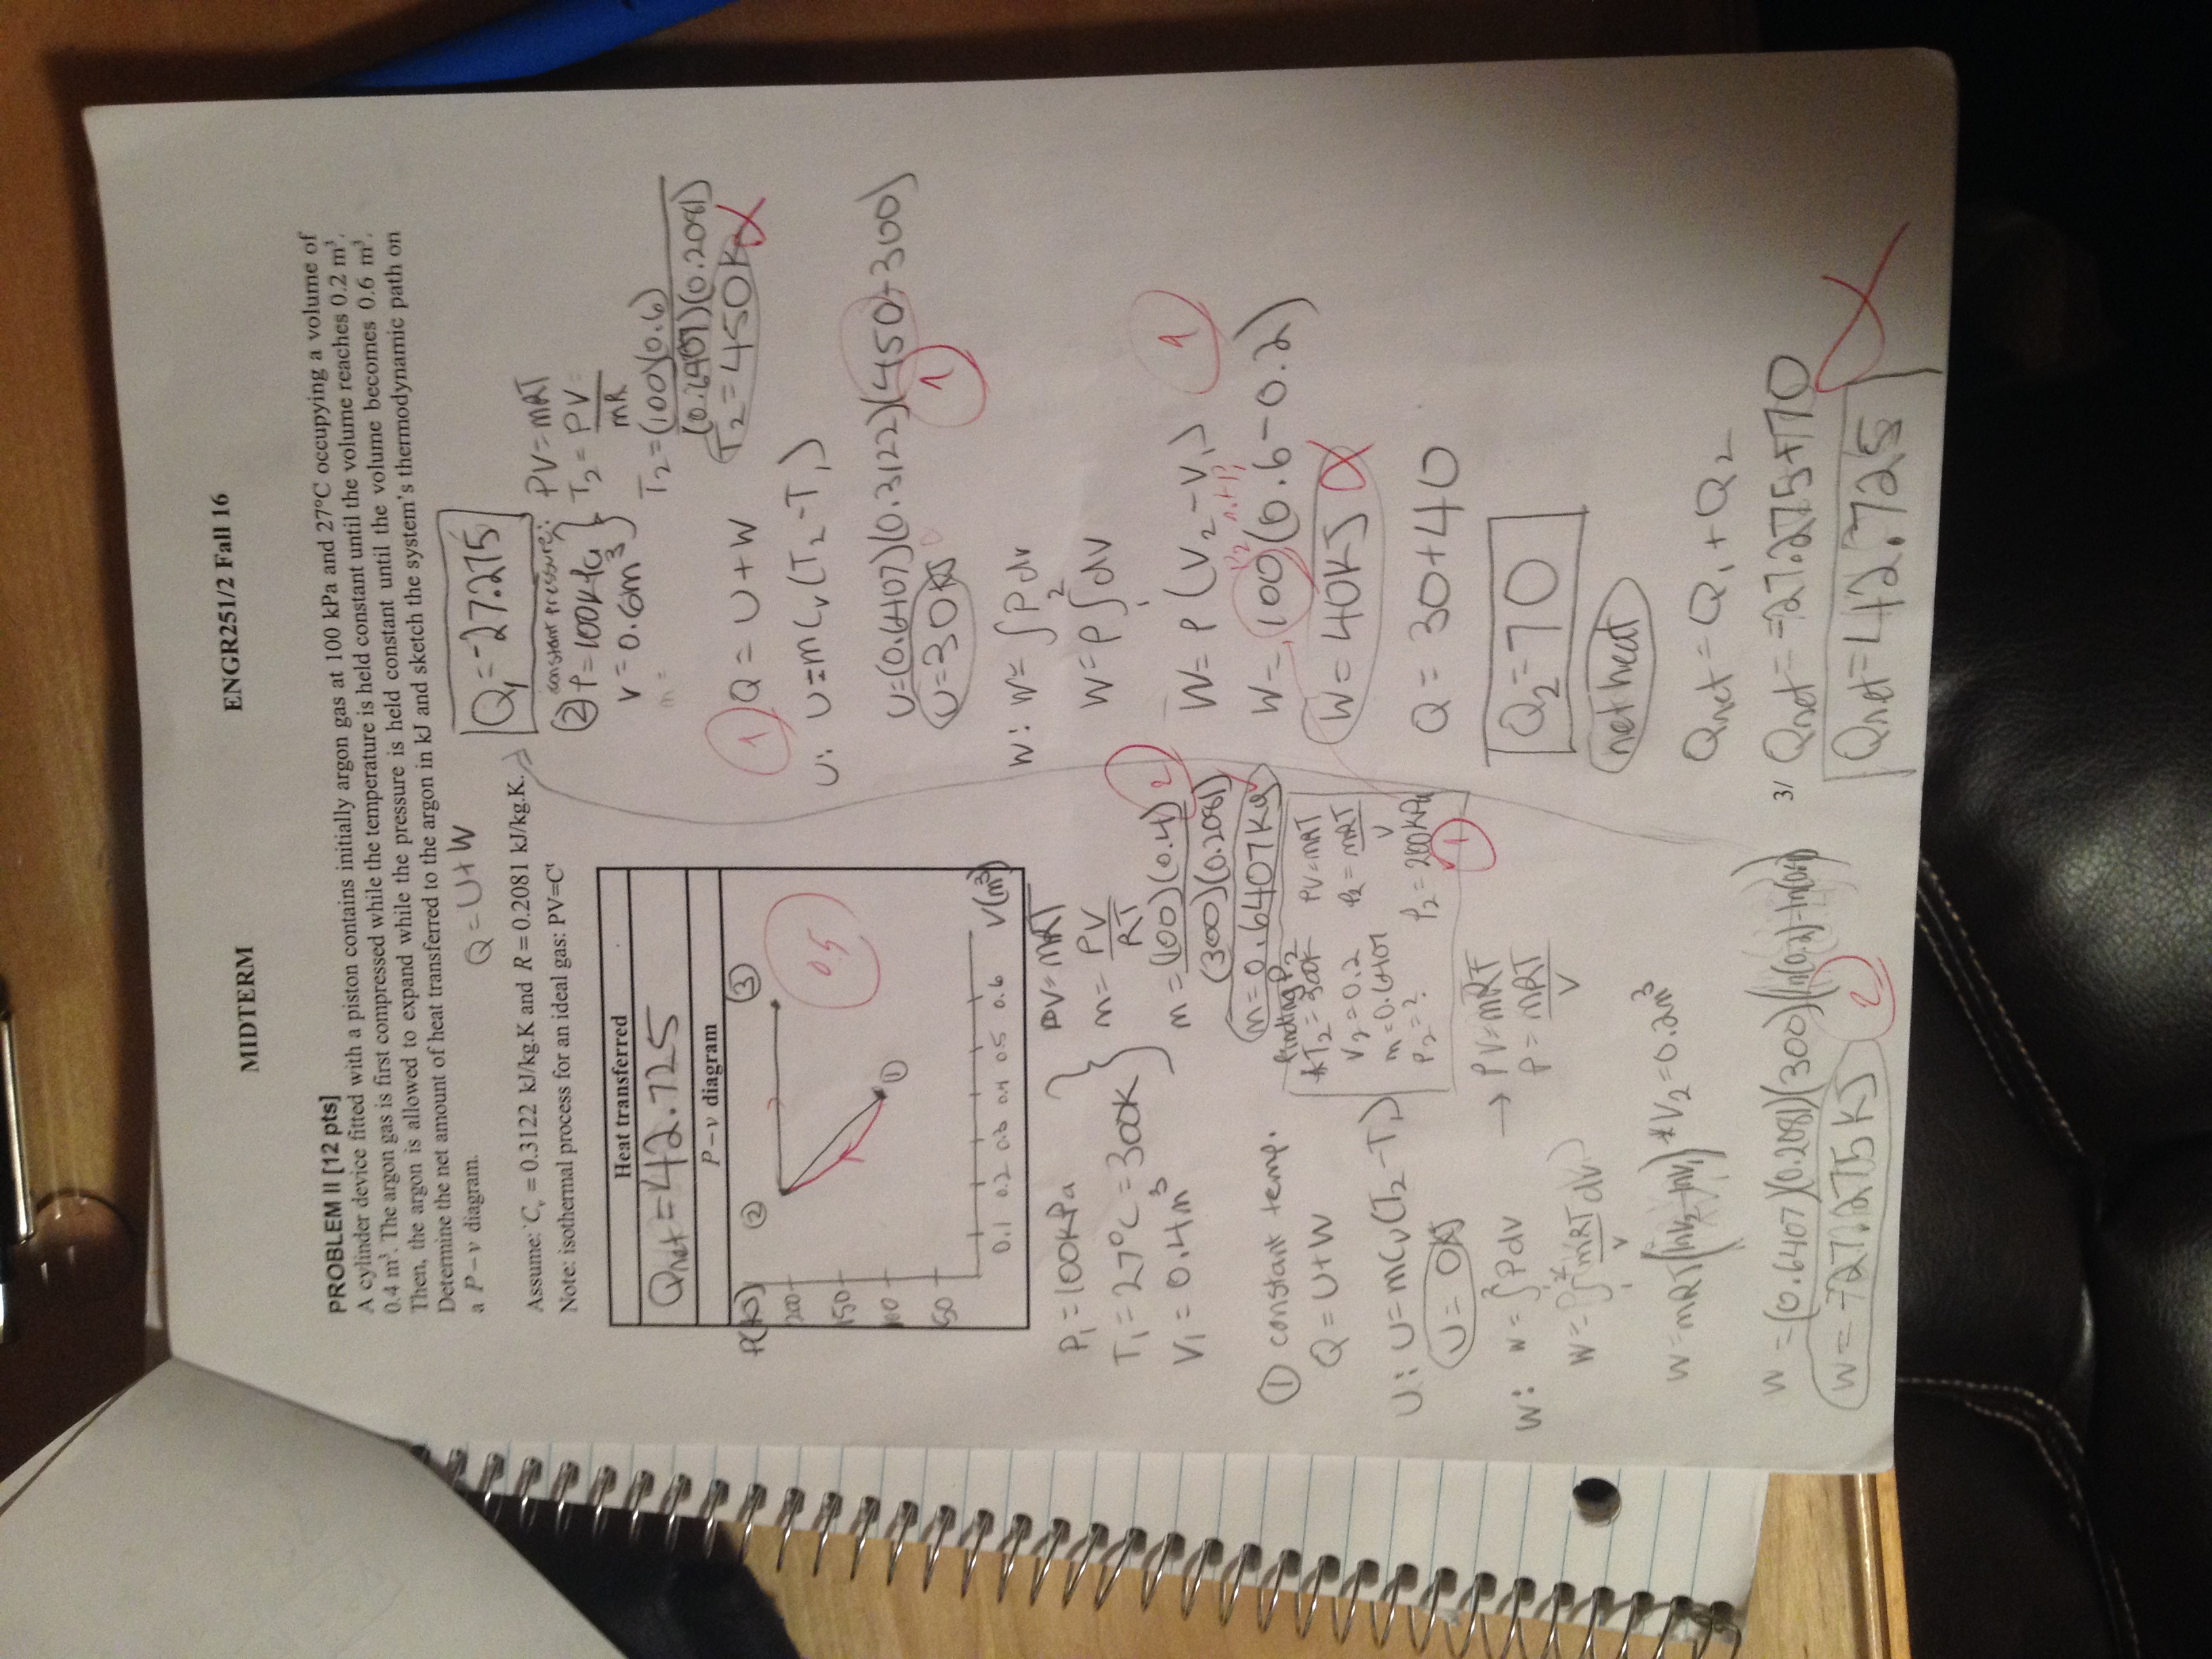 MIDTERM
ENGR251/2 Fall 16
PROBLEM II [12 pts]
A cylinder device fitted with a piston contains initially argon gas at 100 kPa and 27°C occupying a volume of
0.4 m³. The argon gas is first compressed while the temperature is held constant until the volume reaches 0.2 m³.
Then, the argon is allowed to expand while the pressure is held constant until the volume becomes 0.6 m³.
Determine the net amount of heat transferred to the argon in kJ and sketch the system's thermodynamic path on
a P – v diagram.
Q = U+W
Assume: Cv = 0.3122 kJ/kg.K and R = 0.2081 kJ/kg.K.
Note: isothermal process for an ideal gas: PV=Cᵗ
Heat transferred
Qnet = 42.725
P – v diagram
②
③
200
150
100
50
①
0.5
0.1 0.2 0.3 0.4 0.5 0.6
V(m³)
P₁ = 100kPa
T₁ = 27°C = 300K
V₁ = 0.4m³
PV = mRT
m = PV
RT
m = (100)(0.4)
(300)(0.2081)
2
m = 0.6407kg
① constant temp.
Q = U+W
U: U = mCv(T₂-T₁)
U = 0KJ
finding P₂
*T₂ = 300K
V₂ = 0.2
m = 0.6407
P₂ = ?
PV = mRT
P₂ = mRT
V
P₂ = 200kPa
1
W: W = ∫Pdv
→ PV = mRT
P = mRT
V
W = ∫mRT dv
V
W = mRT(lnV₂-lnV₁)
*V₂ = 0.2m³
W = (0.6407)(0.2081)(300)(ln(0.2)-ln(0.4))
W = -27.275KJ
2
Q₁ = -27.275
constant pressure:
② P = 100kPa
V = 0.6m³
PV = mRT
T₂ = PV
mR
T₂ = (100)(0.6)
(0.6407)(0.2081)
T₂ = 450K
1
Q = U+W
U: U = mCv(T₂-T₁)
U = (0.6407)(0.3122)(450-300)
1
U = 30KJ
W: W = ∫Pdv
W = P∫dv
W = P(V₂-V₁)
1
W = 100(0.6-0.2)
W = 40KJ
Q = 30+40
Q₂ = 70
net heat
Qnet = Q₁+Q₂
Qnet = -27.275+70
Qnet = 42.725
3/